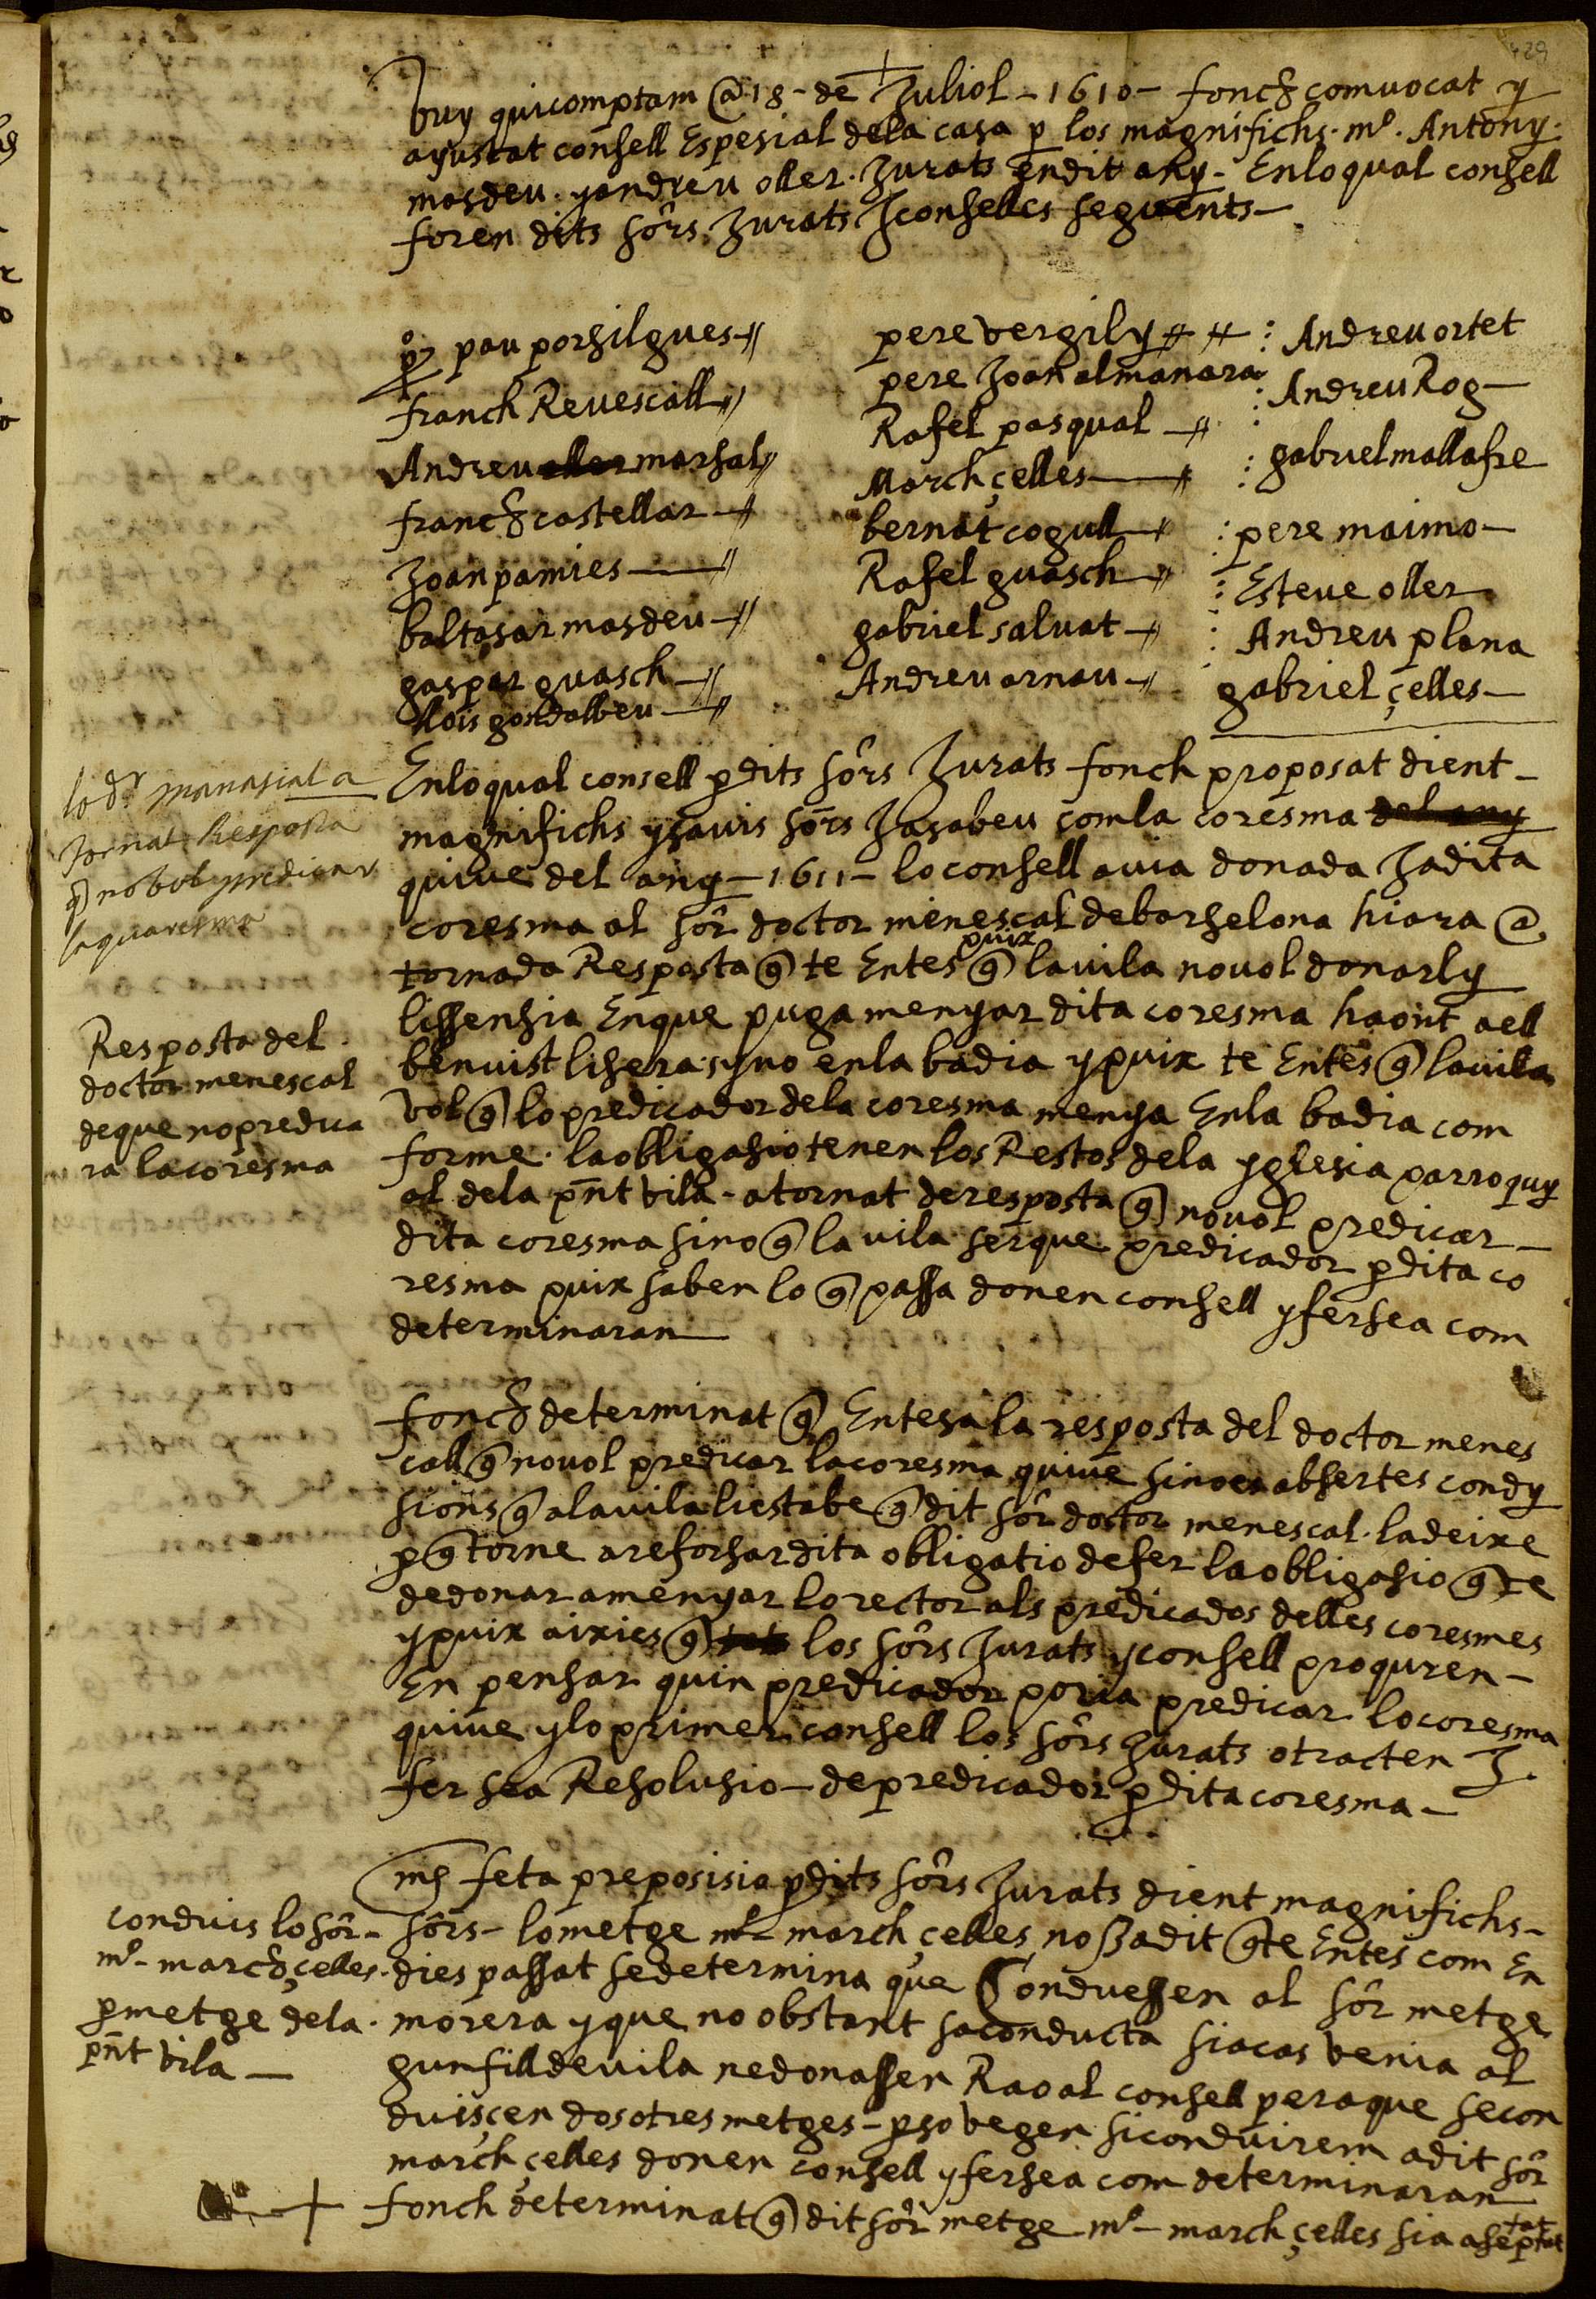 429
buy quicomptam @ 18 - de Juliol - 1610 - fonch comvocat y
ajustat consell Espesial de la casa p los magnifichs . mº . Antony .
masdeu . y andreu oller . Jurats en dit any - En lo qual consell
foren dits sõrs Jurats J consellés seguents -
pº pau porsilgues -//
franch Revescall //
Andreu oller marsal //
franch castellar -//
Joan pamies — //
baltasar masdeu -//
gaspar guasch -//
llois gondolbeu -//
pere vergily # #
pere Joan almanara
Rafel pasqual -//
March çelles — //
bernat cogull -//
Rafel guasch -//
gabriel salvat -//
Andreu arnau -//
: Andreu ortet
: Andreu Rog -
: gabriel mallafre
: pere maimo -
: Esteve oller
: Andreu plana
gabriel çelles -
lo dr manasial a
tornat Resposta
q no vol predicar
la quaresma
En lo qual consell p dits sõrs Jurats fonch proposat dient -
magnifichs y savis sõrs Ja saben com la coresma del any
quive del any - 1611 - lo consell avia donada Ja dita
coresma al sõr doctor menescal de barselona hi ara @
tornada Resposta q te Entes puix q la vila no vol donarly
lissensia En que puga menyar dita coresma haont a ell
ben vist li sera . y no en la badia y puix te Entes q la vila
vol q lo predicador de la coresma menya En la badia com
forme . la obligasio tenen los Restos de la yglesia parroquy
al de la pñt vila - a tornat de resposta q no vol predicar -
dita coresma sino q la vila serque predicador p dita co
resma puix saben lo q passa donen consell y fersea com
determinaran —
Resposta del
doctor menescal
de que no predica
ra la coresma
fonch determinat q Entesa la resposta del doctor menes
call q no vol predicar la coresma quive sino en absertes condy
sions q a la vila li esta be q dit sõr doctor menescal . la deixe
p q torne a reforsar dita obligatio de fer la obligasio q te
de donar a menyar lo rector als predicados delles coresmes
y puix aixi es q tots los sõrs Jurats y consell proquren -
En pensar quin predicador poria predicar lo coresma
quive y lo primer consell los sõrs Jurats o tracten J
fer sea Resolusio - de predicador p dita coresma -
mes feta preposisia p dits sõrs Jurats dient magnifichs -
sõrs - lo metge mº march çelles nos a dit q te Entes com En
dies passat se determina que Conduessen al sõr metge
morera y que no obstant sa conducta si acas venia al
gun fill de vila ne donassen Rao al consell pera que secon
duissçen dos o tres metges - p so vegen si conduirem a dit sõr
march çelles donen consell y fersea com determinaran
conduis lo sõr -
mº - march çelles .
p metge de la .
pñt vila —
fonch determinat q dit sõr metge mº - march çelles sia aseptat